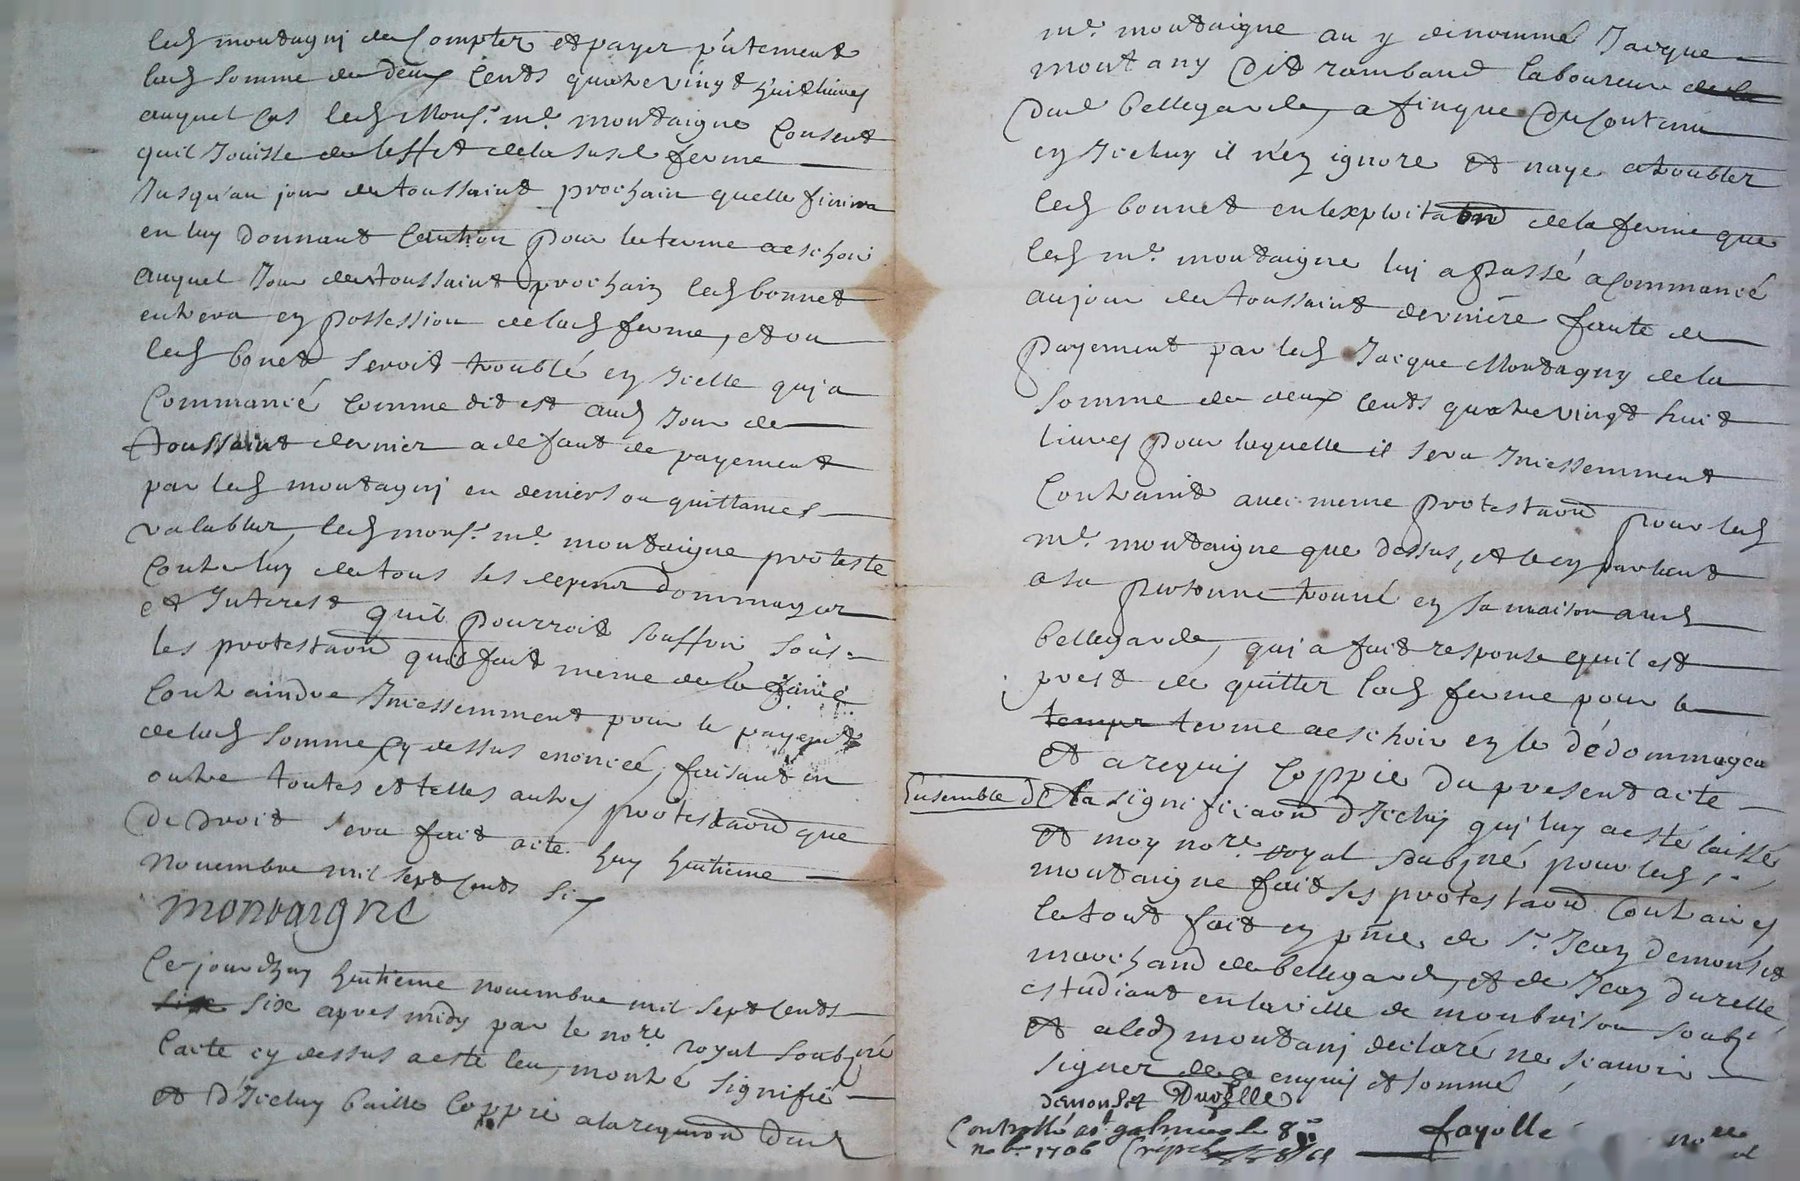 led montagni de Compter et payer p̃ntement
lad somme de deux Cents quatrevingt huit livres
auquel Cas led Mons.r m.e montaigne Consent
quil Jouisse de leffet de la susd ferme
Jusqu'au jour de toussaint prochain quelle finira
en luy donnant Caution pour le terme aeschoir
auquel Jour de toussaint prochain led bonnet
entrera en possession de lad ferme, et ou
led bonet seroit troublé en Jcelle qui a
Commancé comme dit est aud Jour de
toussaint dernier a defaut de payement
par led montagni en deniers ou quittances
valables, led mons.r m.e montaigne proteste
Contre luy de tous ses depens dommages
et Interest quil pourroit souffrir, sous
les protestaõns quil fait meme de le faire
Contraindre Incessemment pour le payem.t
de lad somme cy dessus enoncée, faisant en
outre toutes et telles autres protestaõns que
De Droit sera fait acte. huy huitieme
novembre mil sept Cents six
montaigne
Ce jourdhuy huitieme novembre mil sept Cents
six apres midy par le no.re royal soubz.né
Lacte cy dessus a esté leu, montré signifié
et d'Jceluy baillé Coppie a la requi.on dud
m.e montaigne au y denommé Jacque
montany dit rambaud laboureur
dud bellegarde, a finque du Contenu
en Jceluy il n'en ignore et naye atroubler
led bonnet en lexploitaõn de la ferme que
led m.e montaigne luy a passé a commancé
au jour de toussaint derniére faute de
payement par led Jacque Montagny de la
somme de deux Cents quatrevingt huit
livres pour laquelle il sera Incessemment
Contraint avec meme protestaõn pour led
m.e montaigne que dessus, et le en parlant
a sa personne trouvé en sa maison aud
bellegarde, qui a fait response quil est
prest de quitter lad ferme pour le
temps terme aeschoir en le dédommagea
et a requis Coppie du present acte
Ensemble de la significaõn d'Jceluy qui luy a esté laissé
et moy no.re royal soubz.né pour led s.r
montaigne fait ses protestaõns Contraires
le tout fait en p̃nce de s.r Jean demonset
marchand de bellegarde, et de Jean Durelle
estudiant en la ville de monbrison soubz.
et a led montani declaré ne scavoir
signer de ce enquis et sommé
demonset Durelle
Controllé a s.t galmier le 8.e
no.bre 1706 fayolle no.re